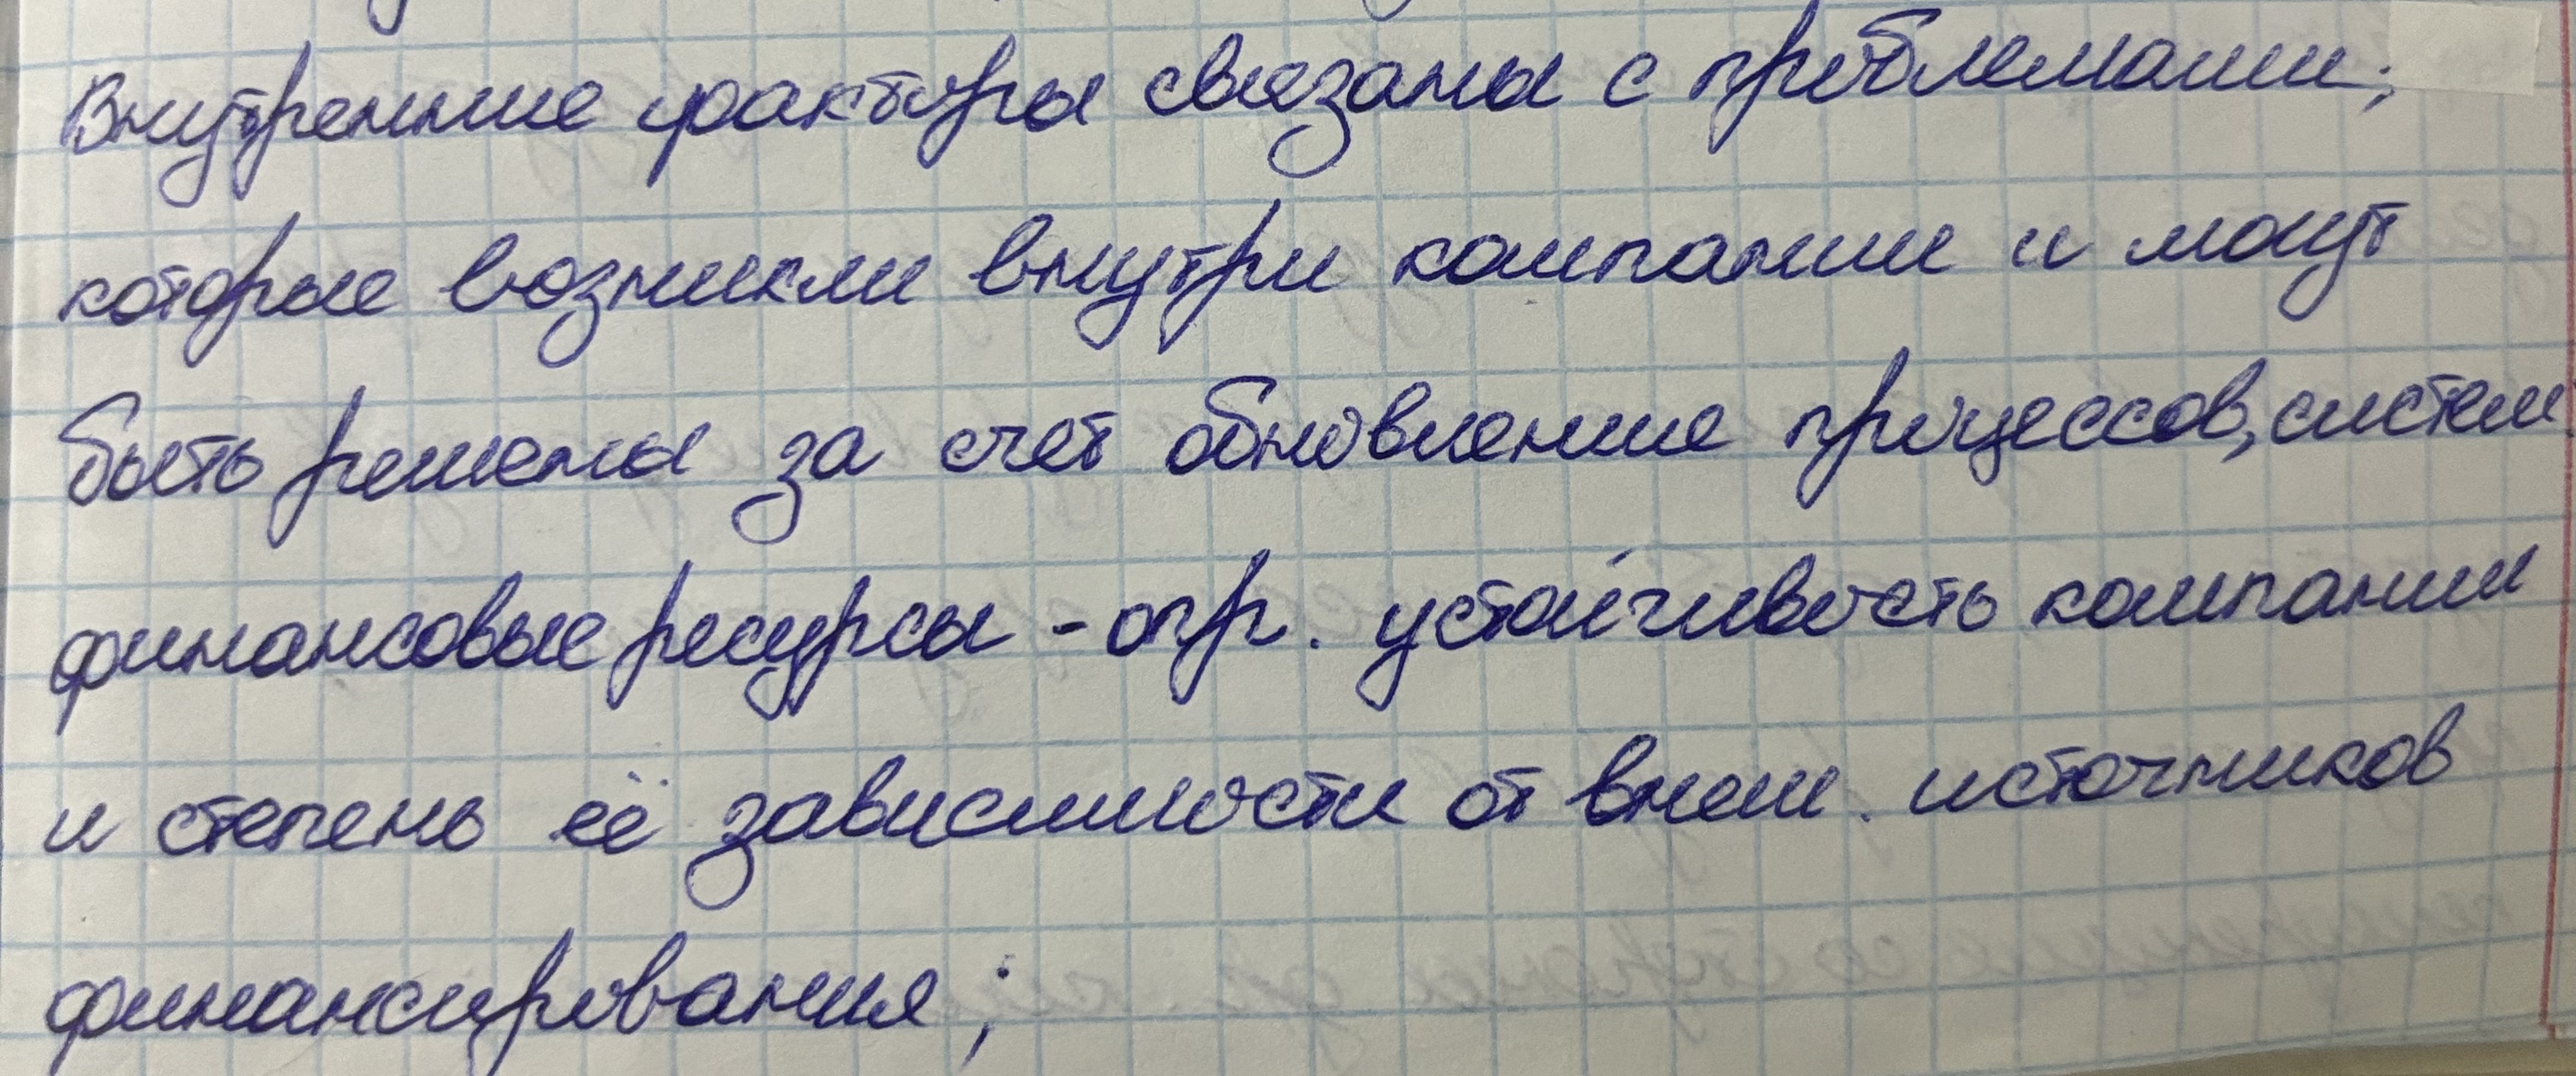 Внутренние факторы связаны с проблемами;
которые возникли внутри компании и могут
быть решены за счет обновление процессов, систем.
финансовые ресурсы - опр. устойчивость компании
и степень её зависимости от внеш. источников
финансирования;